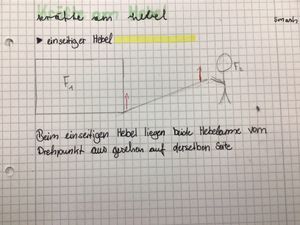 Kräfte am Hebel
Smash
▶ einseitiger Hebel
F1
F2
Beim einseitigen Hebel liegen beide Hebelarme vom
Drehpunkt aus gesehen auf derselben Seite